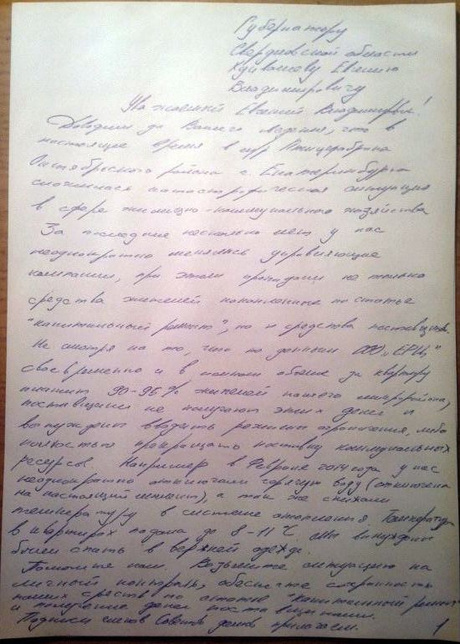 Губернатору
Свердловской области
Куйвашеву Евгению
Владимировичу
Уважаемый Евгений Владимирович!
Доводим до Вашего ведения, что в
настоящее время в м/р Птицефабрика
Октябрьского района г. Екатеринбурга
сложилась катастрофическая ситуация
в сфере жилищно-коммунального хозяйства
За последние несколько лет у нас
неоднократно менялись управляющие
компании, при этом пропадали не только
средства жителей накопленные по статье
"капитальный ремонт", но и средства поставщиков.
Не смотря на то, что по данным ООО „ЕРЦ"
своевременно и в полном объеме за квартиру
платит 90-95% жителей нашего микрорайона,
поставщики не получают этих денег и
вынуждены вводить режим ограничения, либо
полностью прекращать поставку коммунальных
ресурсов. Например в Феврале 2014 года у нас
неоднократно отключали горячую воду (отключена
на настоящий момент), а так же снижали
температуру в системе отопления. Температура
в квартирах падала до 8-11°С. Мы вынуждены
были спать в верхней одежде.
Помогите нам. Возьмите ситуацию на
личный контроль, обеспечьте сохранность
наших средств по статье "капитальный ремонт"
и получение денег поставщиками.
Подписи членов Совета домов прилагаем.
1